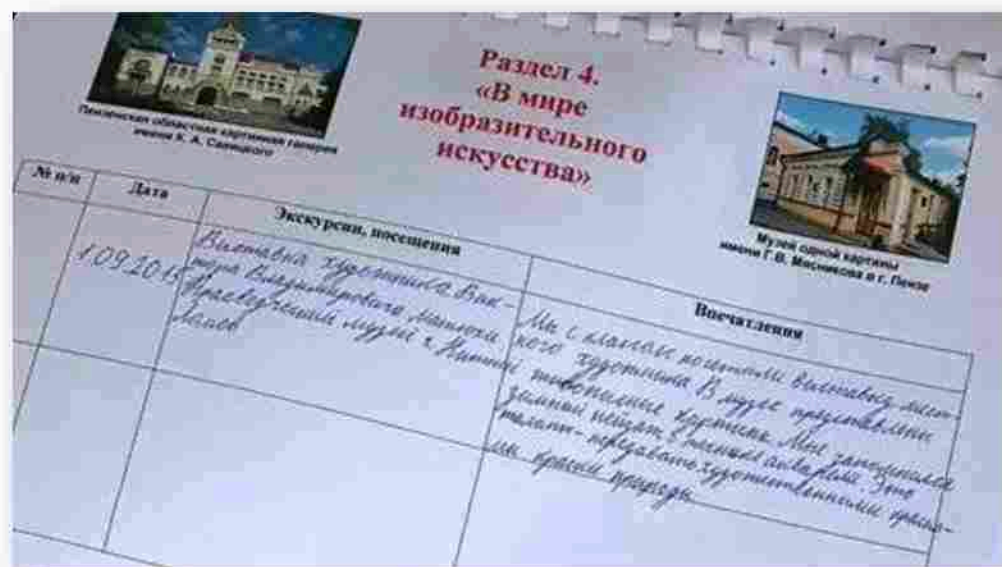 Пензенская областная картинная галерея
имени К. А. Савицкого
Раздел 4.
«В мире
изобразительного
искусства»
Музей одной картины
имени Г.В. Мясникова в г. Пензе
№ п/п
Дата
Экскурсии, посещения
Впечатления
1.09.2015
Выставка художника Вик-
тора Владимировича
Краеведческий музей г. Нижний
Ломов
Мы с классом посетили выставку мест-
ного художника В музее представлены
живописные картины. Мне запомнился
зимний пейзаж, Это
талант - передавать художественными краска-
ми краски природы